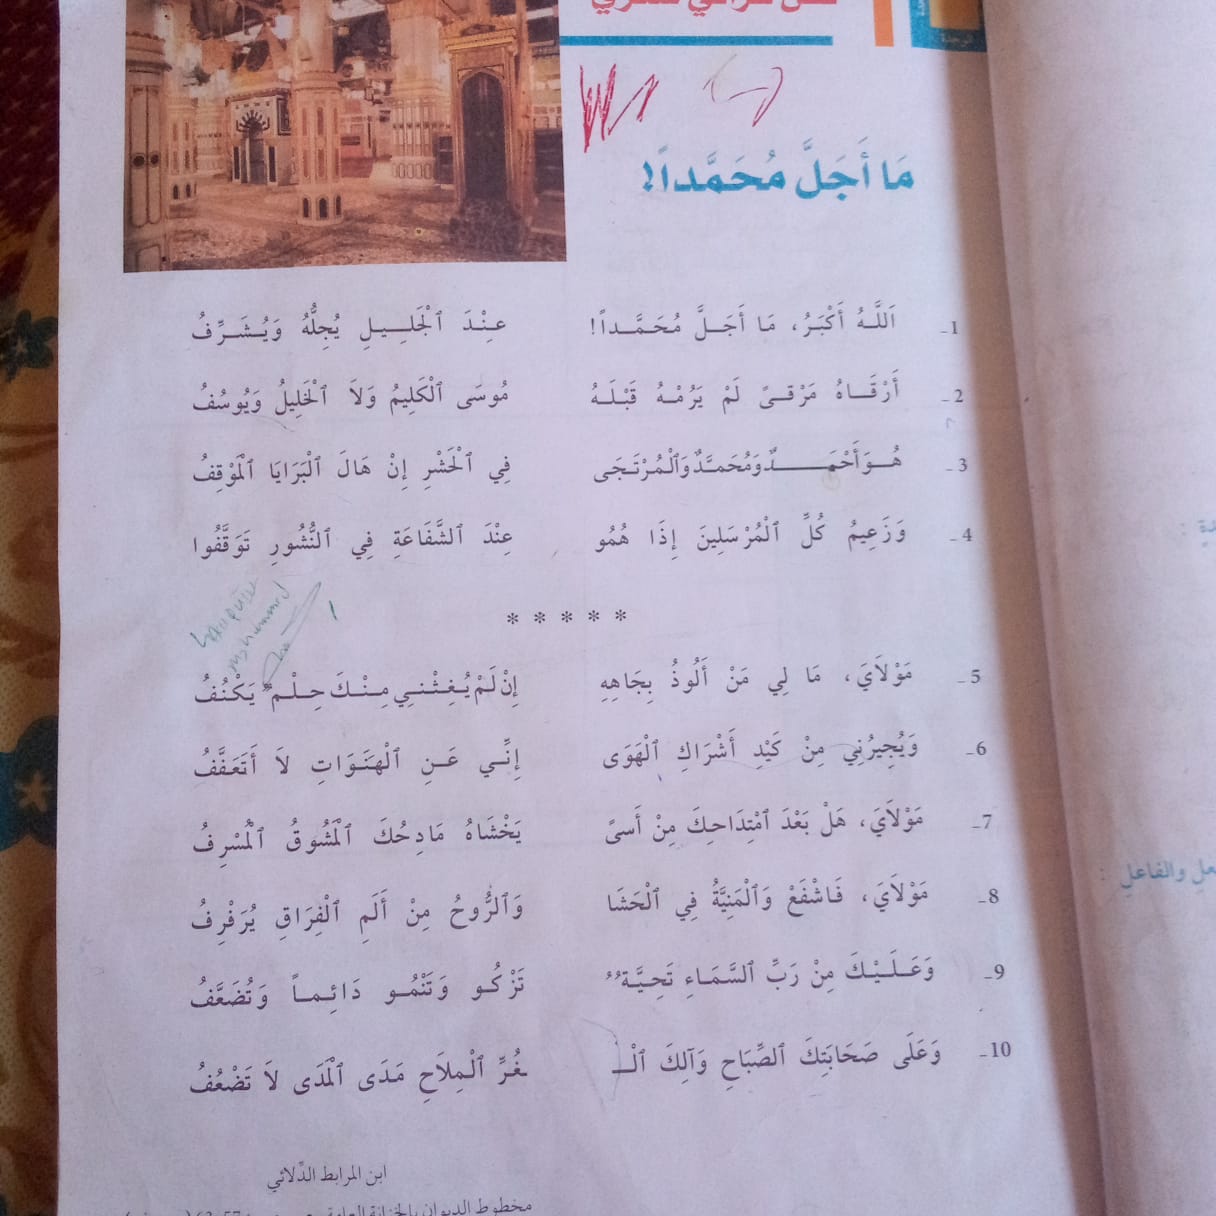 مَا أَجَلَّ مُحَمَّداً!
1- اَللَّهُ أَكْبَرُ، مَا أَجَلَّ مُحَمَّداً! عِنْدَ ٱلْجَلِيلِ يُجِلُّهُ وَيُشَرِّفُ
2- أَرْقَاهُ مَرْقىً لَمْ يَرُمْهُ قَبْلَهُ مُوسَى ٱلْكَلِيمُ وَلاَ ٱلْخَلِيلُ وَيُوسُفُ
3- هُوَ أَحْمَدٌ وَمُحَمَّدٌ وَٱلْمُرْتَجَى فِي ٱلْحَشْرِ إِنْ هَالَ ٱلْبَرَايَا ٱلْمَوْقِفُ
4- وَزَعِيمُ كُلِّ ٱلْمُرْسَلِينَ إِذَا هُمُو عِنْدَ ٱلشَّفَاعَةِ فِي ٱلنُّشُورِ تَوَقَّفُوا
* * * * *
5- مَوْلاَيَ، مَا لِي مَنْ أَلُوذُ بِجَاهِهِ إِنْ لَمْ يُغِثْنِي مِنْكَ حِلْمٌ يَكْنُفُ
6- وَيُجِيرُنِي مِنْ كَيْدِ أَشْرَاكِ ٱلْهَوَى إِنِّي عَنِ ٱلْهَنَوَاتِ لاَ أَتَعَفَّفُ
7- مَوْلاَيَ، هَلْ بَعْدَ ٱمْتِدَاحِكَ مِنْ أَسىً يَخْشَاهُ مَادِحُكَ ٱلْمَشُوقُ ٱلْمُسْرِفُ
8- مَوْلاَيَ، فَاشْفَعْ وَٱلْمَنِيَّةُ فِي ٱلْحَشَا وَٱلرُّوحُ مِنْ أَلَمِ ٱلْفِرَاقِ يُرَفْرِفُ
9- وَعَلَيْكَ مِنْ رَبِّ ٱلسَّمَاءِ تَحِيَّةٌ تَزْكُو وَتَنْمُو دَائِماً وَتُضَعَّفُ
10- وَعَلَى صَحَابَتِكَ ٱلصِّبَاحِ وَآلِكَ ٱلْـ ـغُرِّ ٱلْمِلاَحِ مَدَى ٱلْمَدَى لاَ تَضْعُفُ
ابن المرابط الدِّلائي
مخطوط الديوان بالخزانة العامة
عل والفاعلِ :